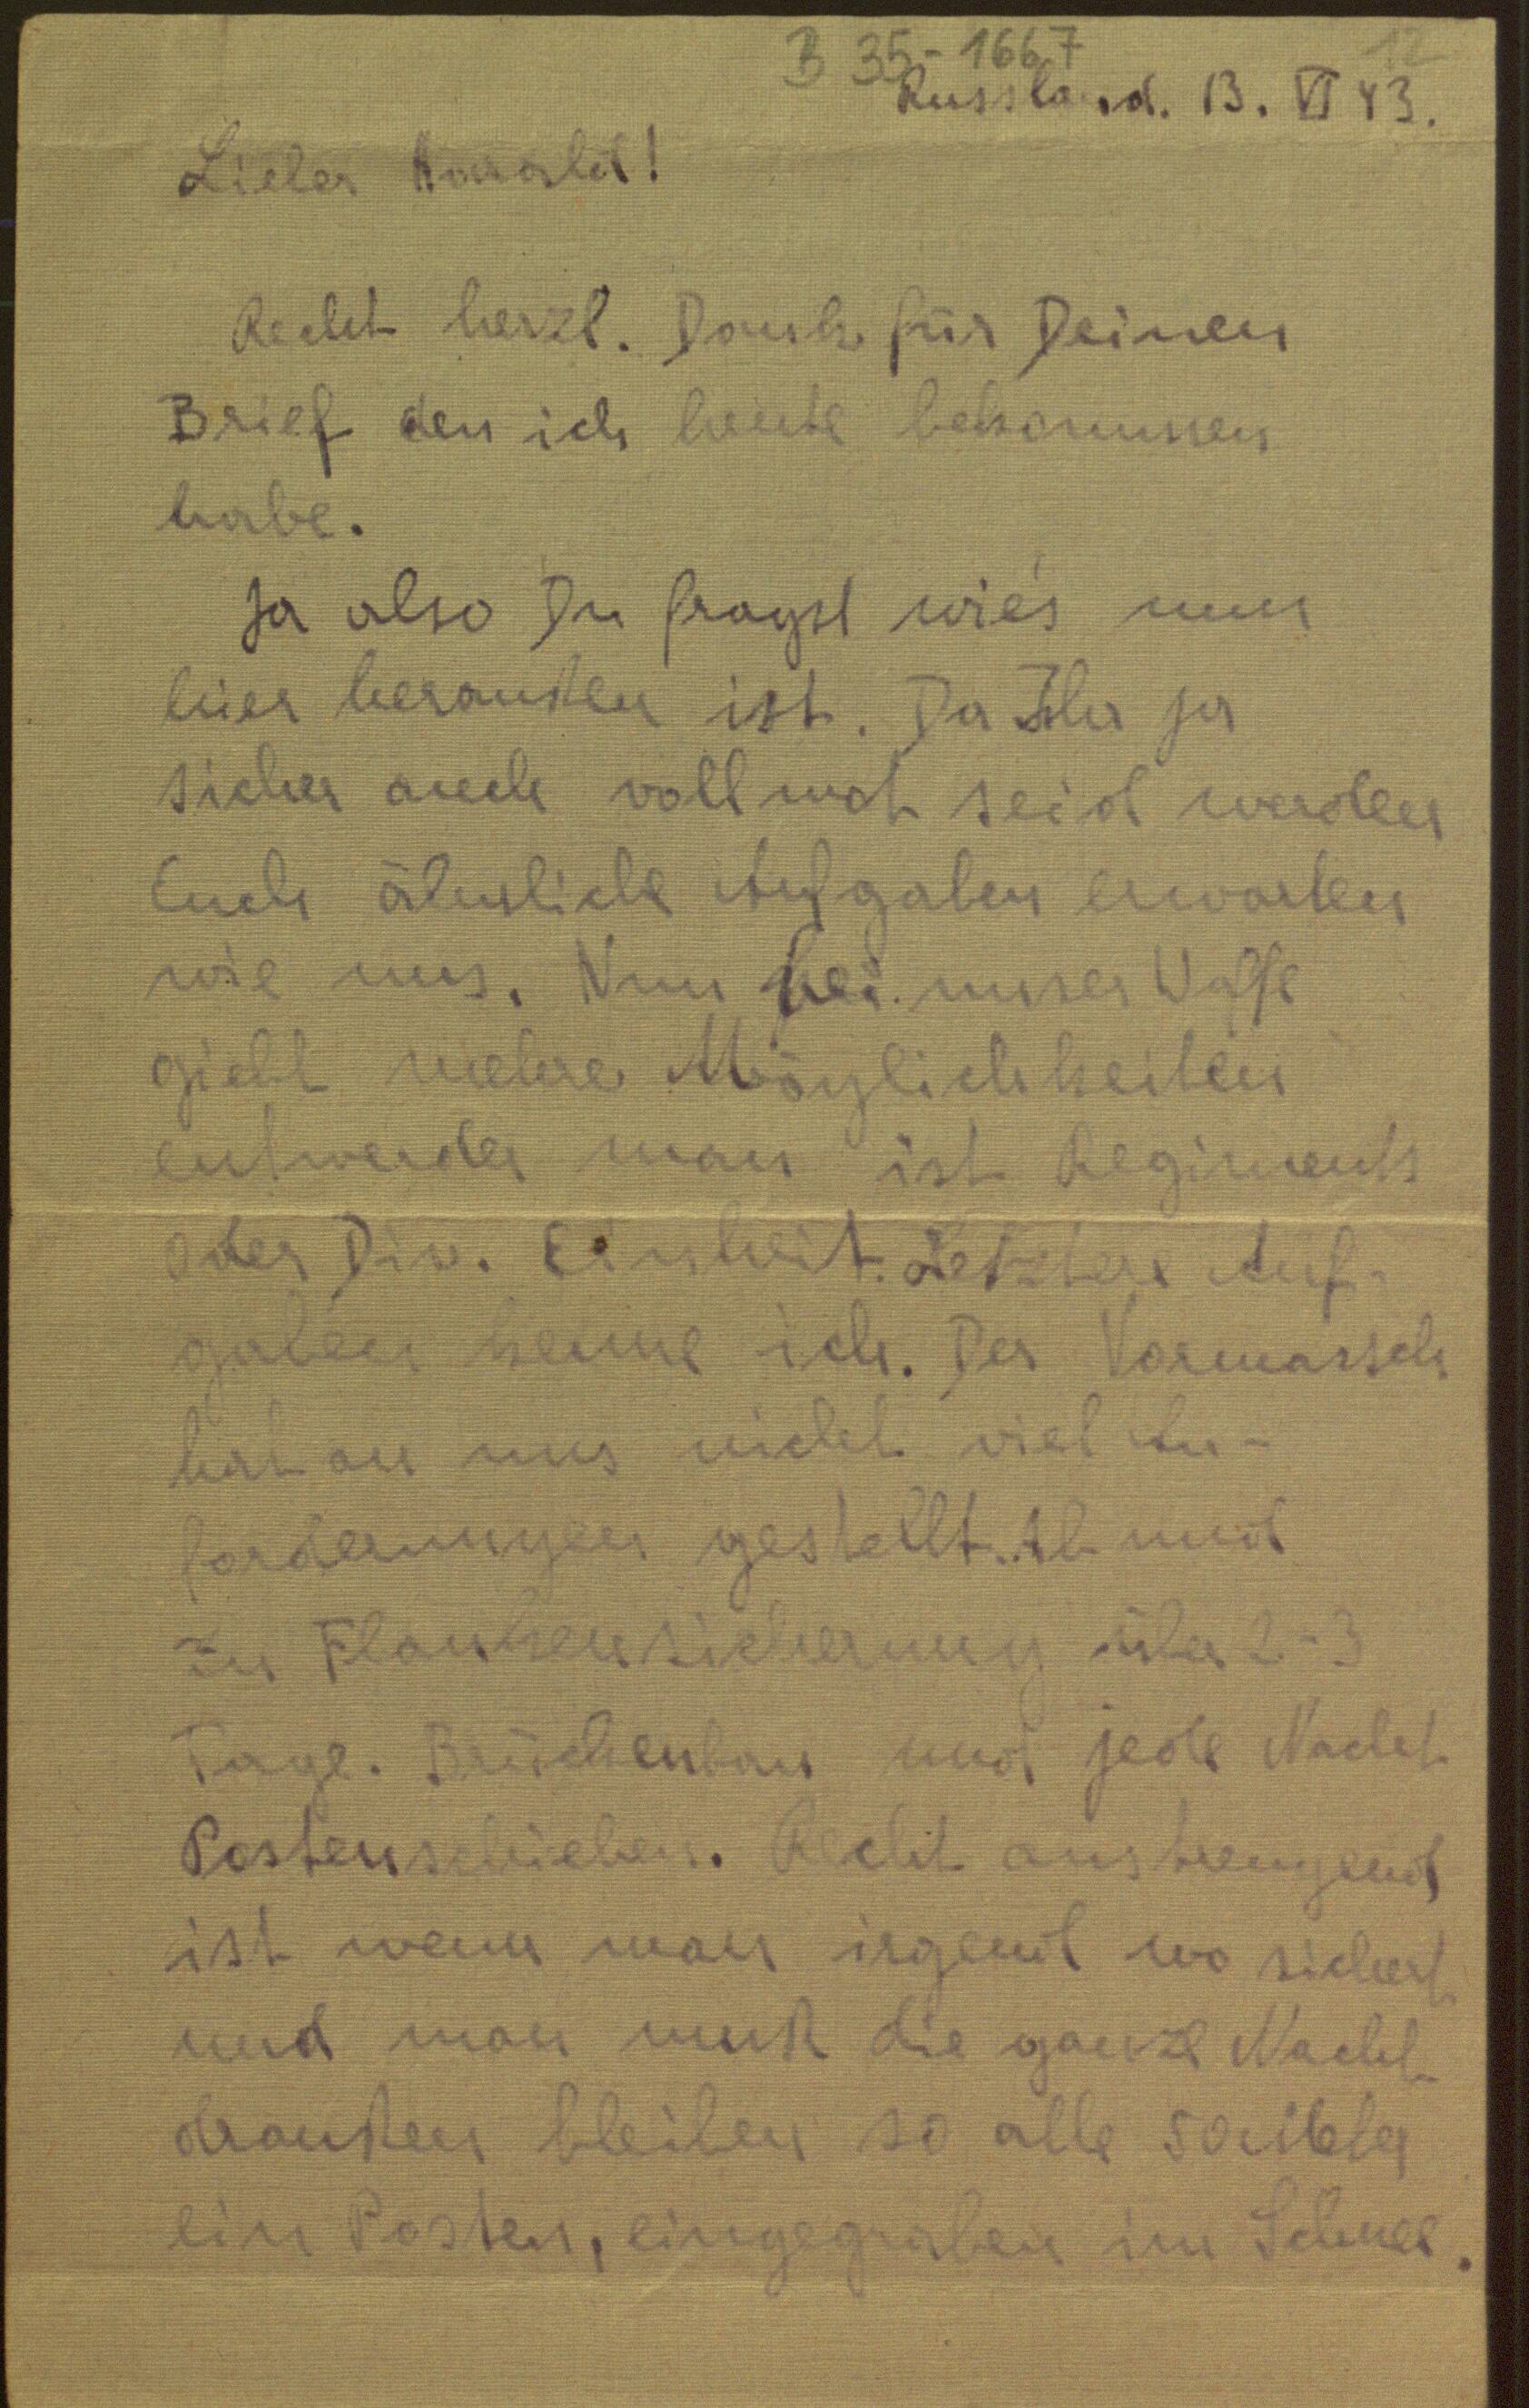 B 35-1667 12
Russland. 13. VI 43.
Lieber Harald!
Recht herzl. Dank für Deinen
Brief den ich heute bekommen
habe.
Ja also Du fragst wie's nun
hier heraußen ist. Da Ihr ja
sicher auch voll mot seid werden
Euch ähnliche Aufgaben erwarten
wie uns. Nun bei unser Waffe
giebt mehre Möglichkeiten
entweder man ist Regiments
oder Div. Einheit. Letztere Auf-
gaben kenne ich. Der Vormarsch
hat an uns nicht viel An-
forderungen gestellt. Ab und
zu Flankensicherung über 2-3
Tage. Brückenbau und jede Nacht
Postenschieben. Recht anstrengend
ist wenn man irgend wo sichert
und man muß die ganze Nacht
draußen bleiben so alle 50 Meter
ein Posten, eingegraben im Schnee.